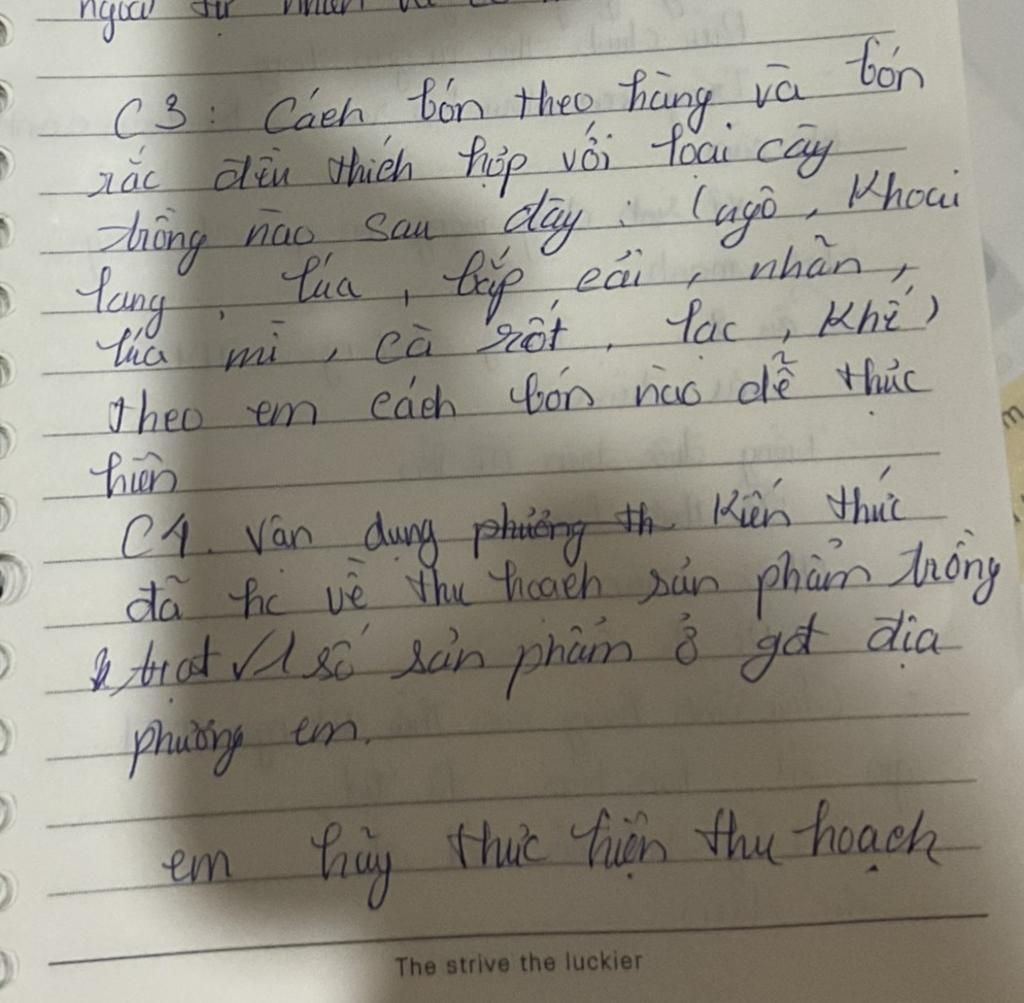 ngoài tự nhiên
C3: Cách bón theo hàng và bón
rắc đều thích hợp với loại cây
trồng nào sau đây: (ngô, khoai
lang, lúa, bắp cải, nhãn,
lúa mì, cà rốt, lạc, khế)
theo em cách bón nào dễ thực
hiện
C4. Vận dụng phương th Kiến thức
đã hc về thu hoạch sản phẩm trồng
trọt √1 số sản phẩm ở gđ địa
phương em.
em hãy thực hiện thu hoạch
The strive the luckier